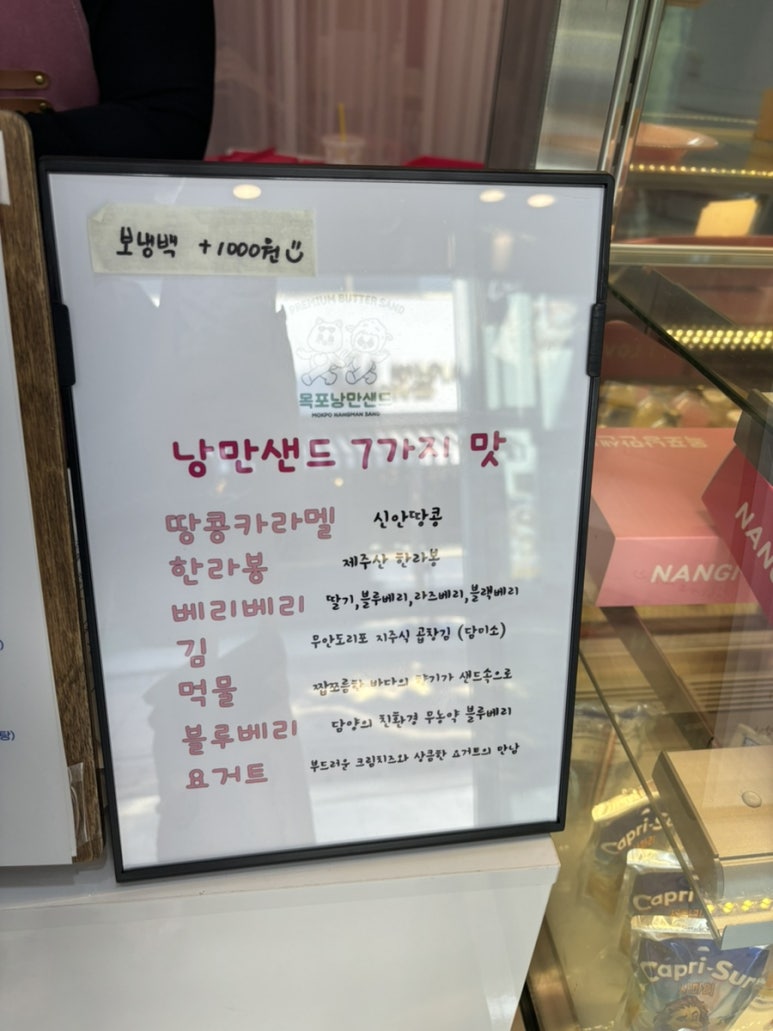 보냉백 +1000원
PREMIUM BUTTER SAND
목포낭만샌드
MOKPO NANGMAN SAND
낭만샌드 7가지 맛
땅콩카라멜 신안땅콩
한라봉 제주산 한라봉
베리베리 딸기,블루베리,라즈베리,블랙베리
김 무안도리포 지주식 곱창김 (담미소)
먹물 짭쪼름한 바다의 향기가 샌드속으로
블루베리 담양의 친환경 무농약 블루베리
요거트 부드러운 크림치즈와 상큼한 요거트의 만남
NANG
NANG
탕)
Capri-Su
Capri
Capri-Sun